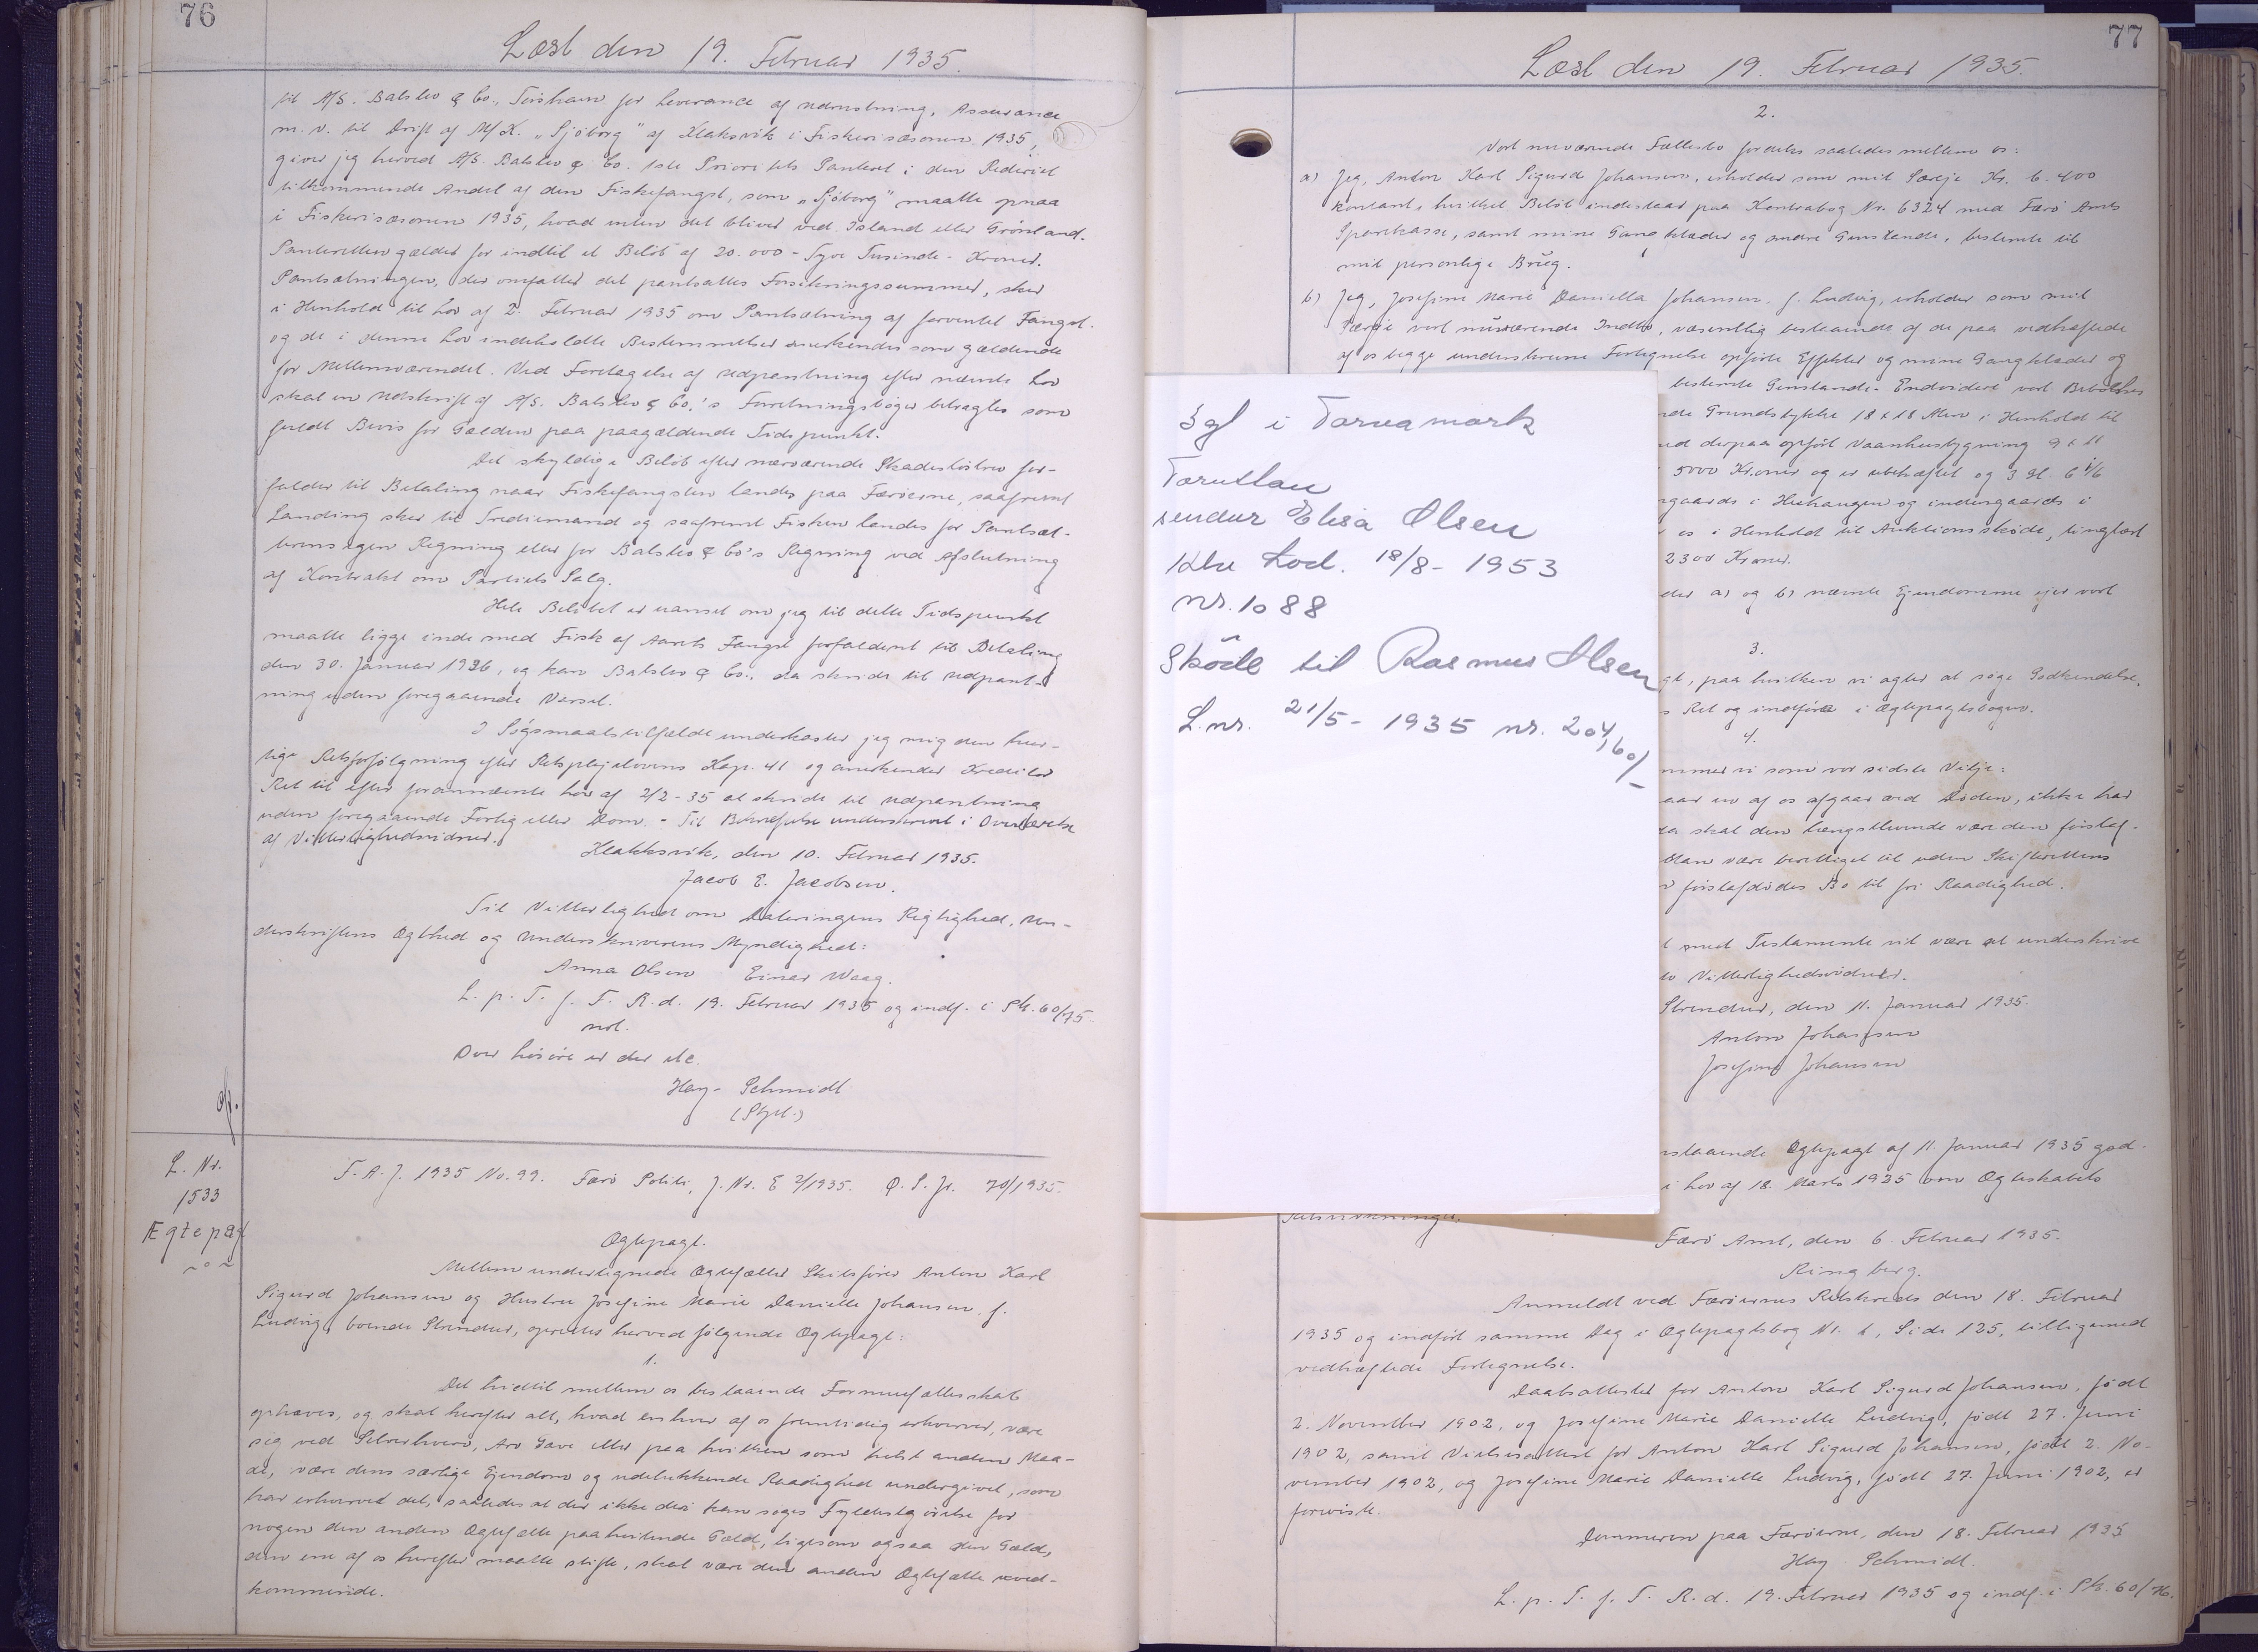 76
Læst den 19. Februar 1935.
til A/S. Balslev & Co., Torshavn for Leverance af Udrustning, Assurance
m. v. til Drift af M/K. "Sjóborg" af Klaksvik i Fiskerisæsonen 1935,
giver jeg herved A/S. Balslev & Co. 1ste Prioritets Panteret i den Rederiet
tilkommende Andel af den Fiskefangst, som "Sjóborg" maatte opnaa
i Fiskerisæsonen 1935, hvad enten det bliver ved Island eller Grönland.
Panteretten gælder for indtil et Belöb af 20.000 - Tyve Tusinde - Kroner.
Pantsætningen, der omfatter det pantsattes Forsikringssummer, sker
i Henhold til Lov af 2. Februar 1935 om Pantsætning af forventet Fangst.
og de i denne Lov indeholdte Bestemmelser anerkendes som gældende
for Mellemværendet. Ved Foretagelse af Udpantning efter nævnte Lov
skal en Udskrift af A/S. Balslev & Co.'s Forretningsböger betragtes som
fuldt Bevis for Gælden paa paagældende Tidspunkt.
Det skyldige Belöb efter nærværende Skadeslösbrev for-
falder til Betaling naar Fiskefangsten landes paa Færöerne, saafremt
Landing sker til Trediemand og saafremt Fisken landes for Pantsæt-
terens egen Regning eller for Balslev & Co's Regning ved Afslutning
af Kontrakt om Partiets Salg.
Hele Belöbet er uanset om jeg til dette Tidspunkt
maatte ligge inde med Fisk af Aarets Fangst forfaldent til Betaling
den 30. Januar 1936, og kan Balslev & Co., da skride til Udpant-
ning uden foregaaende Varsel.
I Sögsmaalstilfælde underkaster jeg mig den hur-
tige Retsforfölgning efter Retsplejelovens Kap. 41 og anerkender Kreditor
Ret til efter forannævnte Lov af 2/2-35 at skride til Udpantning
uden foregaaende Forlig eller Dom. - Til Bekræftelse underskrevet i Overværelse
af Vitterlighedsvidner.
Klakksvik, den 10. Februar 1935.
Jacob E. Jacobsen.
Til Vitterlighed om Dateringens Rigtighed, Un-
derskriftens Ægthed og Underskriverens Myndighed:
Anna Olsen Einar Waag.
L. p. T. f. F. R. d. 19. Februar 1935 og indf. i Pk. 60/75
Over lösöre er der etc.
Hay- Schmidt
L. Nr.
1533
Ægtepagt
T. A. J. 1935 No. 99. Færö Politi, J. Nr. E 2/1935. 70/1935.
Ægtepagt.
Mellem undertegnede Ægtefæller Skibsförer Anton Karl
Sigurd Johansen og Hustru Josefine Marie Danielle Johansen f.
Ludvig, boende Strendur, oprettes herved fölgende Ægtepagt:
1.
Det hidtil mellem os bestaaende Formuefællesskab
ophæves, og skal herefter alt, hvad enhver af os fremtidig erhverver, være
sig ved Selverhverv, Arv Gave eller paa hvilken som helst anden Maa-
de, være dens særlige Ejendom og udelukkende Raadighed undergivet, som
har erhvervet det, saaledes at der ikke deri kan soges Fyldestgörelse for
nogen den anden Ægtefælle paahvilende Gæld, ligesom ogsaa den Gæld,
den ene af os herefter maatte stifte, skal være den anden Ægtefælle uved-
kommende.
77
Læst den 19. Februar 1935.
2.
Vort nuværende Fællesbo fordeles saaledes mellem os:
a) Jeg, Anton Karl Sigurd Johansen, erholder som mit Særeje Kr. 6.400
kontant, hvilket Belöb indestaar paa Kontrabog Nr. 6324 med Færö Amts
Sparekasse, samt mine Gangklæder og andre Genstande, bestemte til
mit personlige Brug.
b) Jeg, Josefine Marie Daniella Johansen, f. Ludvig, erholder som mit
Særeje vort nuværende Indbo, væsentlig bestaaende af de paa vedhæftede
af os begge underskrevne Fortegnelse opförte Effekter og mine Gangklæder og
bestemte Genstande. Endvidere vort Beboelses
Grundstykke 18 x 18 Alen i Henhold til
derpaa opfört Vaanhusbygning 9 x 11
5000 Kroner og er ubehæftet og 3 gl. 6
i Heihaugen og indengaards i
os i Henhold til Auktionssköde, tinglæst
2300 Kroner.
a) og b) nævnte Ejendomme ejer vort
3.
paa hvilken vi agter at söge Godkendelse,
Ret og indföre i Ægtepagtsbogen.
4.
vi som vor sidste Vilje:
en af os afgaar ved Döden, ikke har
skal den længstlevende være den förstaf-
være berettiget til uden Skifterettens
förstafdödes Bo til fri Raadighed.
med Testamente vil være at underskrive
Vitterlighedsvidner.
Strendur, den 11. Januar 1935.
Anton Johansen
Josefine Johansen
Ægtepagt af 11. Januar 1935 god-
i Lov af 18. Marts 1925 om Ægteskabets
Retsvirkninger.
Færö Amt, den 6. Februar 1935.
Ringberg.
Anmeldt ved Færöernes Retskreds den 18. Februar
1935 og indfört samme Dag i Ægtepagtsbog Nr. 1, Side 125, tilligemed
vedhæftede Fortegnelse.
Daabsattester for Anton Karl Sigurd Johansen, född
2. November 1902, og Josefine Marie Danielle Ludvig, född 27. Juni
1902, samt Vielsesattest for Anton Karl Sigurd Johansen, född 2. No-
vember 1902, og Josefine Marie Danielle Ludvig, född 27. Juni 1902, er
forevist.
Dommeren paa Færöerne, den 18. Februar 1935
Hay Schmidt.
L. p. T. f. F. R. d. 19. Februar 1935 og indf. i Pk. 60/76.
3 gl i Torvamørk
sendur Elisa Olsen
18/8 - 1953
nr. 1088
Sköde til Rasmus Olsen
L. nr. 21/5 - 1935 nr. 204, 60/-